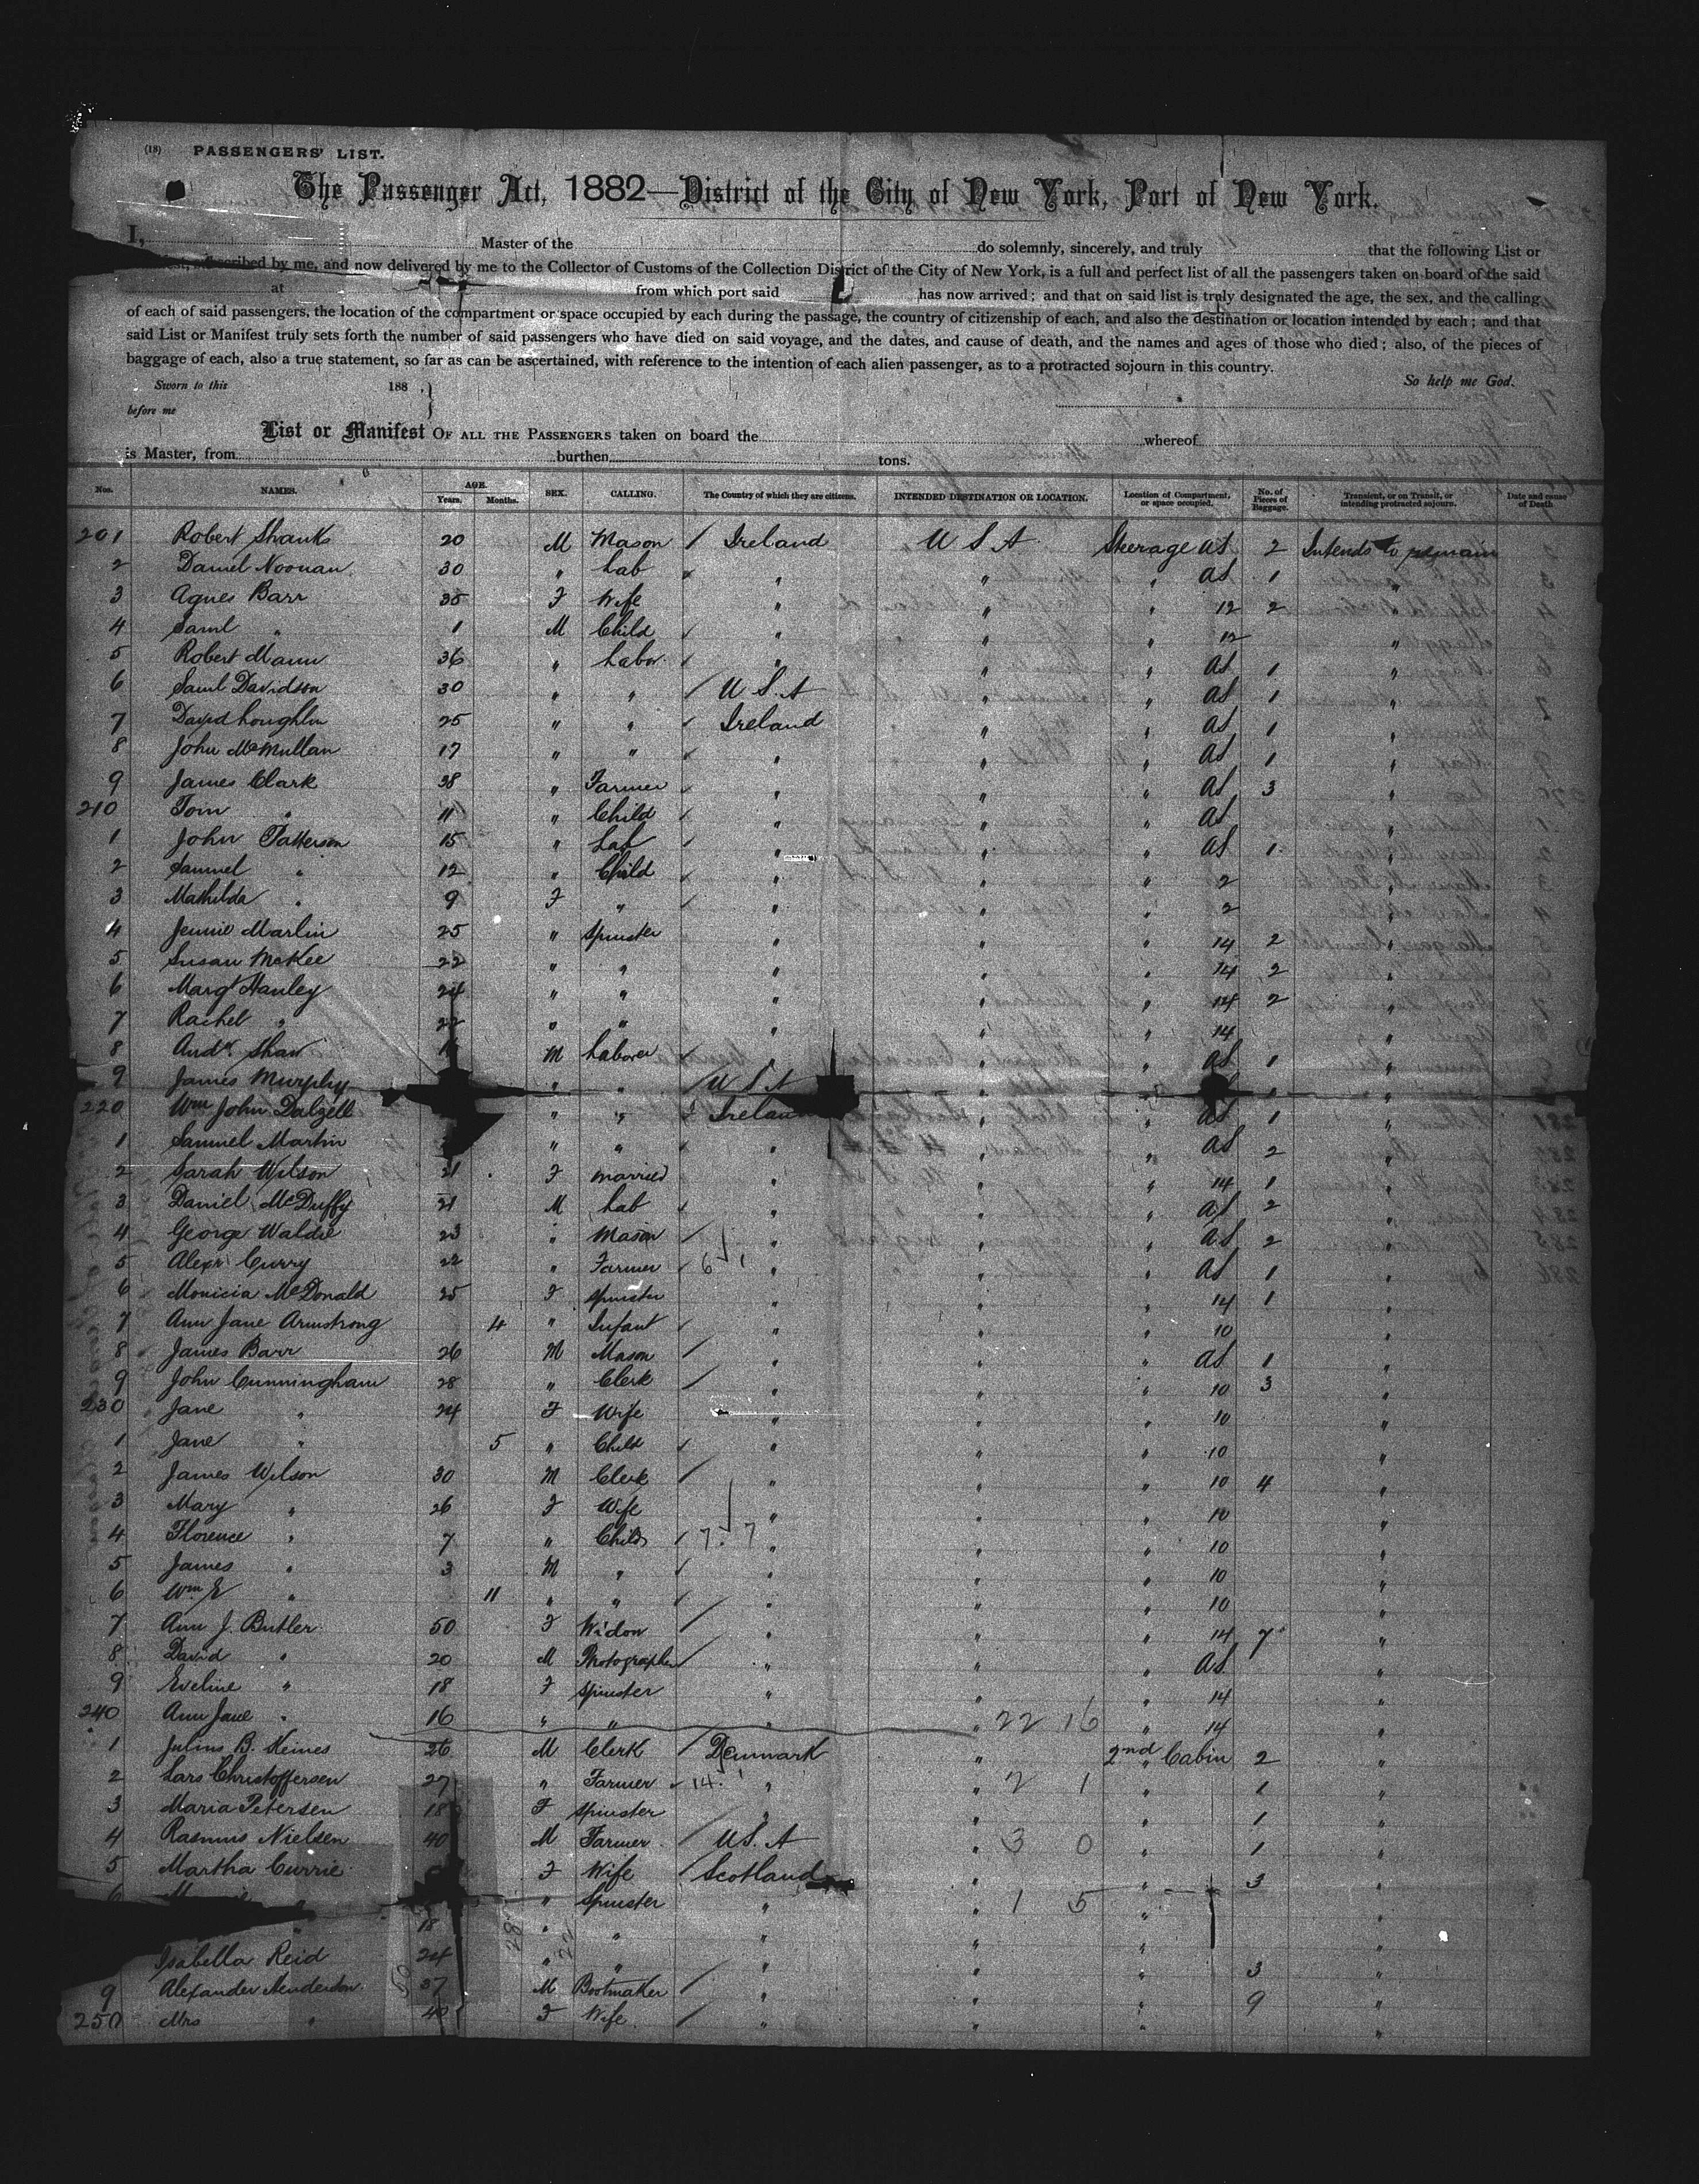 (18) PASSENGERS' LIST.
The Passenger Act, 1882—District of the City of New York, Port of New York.
I, Master of the do solemnly, sincerely, and truly that the following List or
by me, and now delivered by me to the Collector of Customs of the Collection District of the City of New York, is a full and perfect list of all the passengers taken on board of the said
at from which port said has now arrived; and that on said list is truly designated the age, the sex, and the calling
of each of said passengers, the location of the compartment or space occupied by each during the passage, the country of citizenship of each, and also the destination or location intended by each; and that
said List or Manifest truly sets forth the number of said passengers who have died on said voyage, and the dates, and cause of death, and the names and ages of those who died; also, of the pieces of
baggage of each, also a true statement, so far as can be ascertained, with reference to the intention of each alien passenger, as to a protracted sojourn in this country.
Sworn to this 188 So help me God.
before me
List or Manifest OF ALL THE PASSENGERS taken on board the whereof
is Master, from burthen tons.
Nos. NAMES. AGE. Years. Months. SEX. CALLING. The Country of which they are citizens. INTENDED DESTINATION OR LOCATION. Location of Compartment, or space occupied. No. of Pieces of Baggage. Transient, or on Transit, or intending protracted sojourn. Date and cause of Death
201 Robert Shanks 20 M Mason Ireland U S A Steerage as 2 Intends to remain
2 Daniel Noonan 30 " Lab " " " as 1 "
3 Agnes Barr 35 F Wife " " " 12 2 "
4 Saml " 1 M Child " " " 12 "
5 Robert Mann 36 " Labor " " " as 1 "
6 Saml Davidson 30 " " U S. A " " as 1 "
7 David Loughlin 25 " " Ireland " " as 1 "
8 John McMullan 17 " " " " " as 1 "
9 James Clark 38 " Farmer " " " as 3 "
210 Tom " 11 " Child " " " as "
1 John Patterson 15 " Lab " " " as 1 "
2 Samuel " 12 " Child " " " 2 "
3 Mathilda " 9 F " " " " 2 "
4 Jennie Marlin 25 " Spinster " " " 14 2 "
5 Susan McKee 22 " " " " " 14 2 "
6 Margt Hanley 24 " " " " " 14 2 "
7 Rachel " 22 " " " " " 14 "
8 Andw Shaw M Laborer " " " as 1 "
9 James Murphy " " U S A " " 1 "
220 Wm John Dalzell " " Ireland " " as 1 "
1 Samuel Martin " " " " " as 2 "
2 Sarah Wilson 21 F married " " " 14 1 "
3 Daniel McDuffy 21 M Lab " " " as 2 "
4 George Waldie 23 " Mason " " " as 2 "
5 Alexr Curry 22 " Farmer 6 1 " " " as 1 "
6 Monicia McDonald 25 F Spinster " " " 14 1 "
7 Ann Jane Armstrong 4 " Infant " " " 10 "
8 James Barr 26 M Mason " " " as 1 "
9 John Cunningham 28 " Clerk " " " 10 3 "
230 Jane " 24 F Wife " " " 10 "
1 Jane " 5 " Child " " " 10 "
2 James Wilson 30 M Clerk " " " 10 4 "
3 Mary " 26 F Wife " " " 10 "
4 Florence " 7 " Child 7. 7 " " " 10 "
5 James " 3 M " " " " 10 "
6 Wm E " 11 " " " " " 10 "
7 Ann J. Butler 50 F Widow " " " 14 7 "
8 David " 20 M Photographer " " " as "
9 Eveline " 18 F Spinster " " " 14 "
240 Ann Jane " 16 " " " " 22 16 " 14 "
1 Julius B. Heines 26 M Clerk Denmark " 2nd Cabin 2 "
2 Lars Christoffersen 27 " Farmer 14. 1 " " 2 1 " 1 "
3 Maria Petersen 18 F Spinster " " " 1 "
4 Rasmus Nielsen 40 M Farmer U S. A " 3 0 " 1 "
5 Martha Currie F Wife Scotland " " 3 "
6 " " Spinster " " 1 5 " "
" 18 " " " " " "
Isabella Reid 24 " " " " " 3 "
9 Alexander Henderson 37 M Bootmaker " " " 9 "
250 Mrs " 40 F Wife " " " "